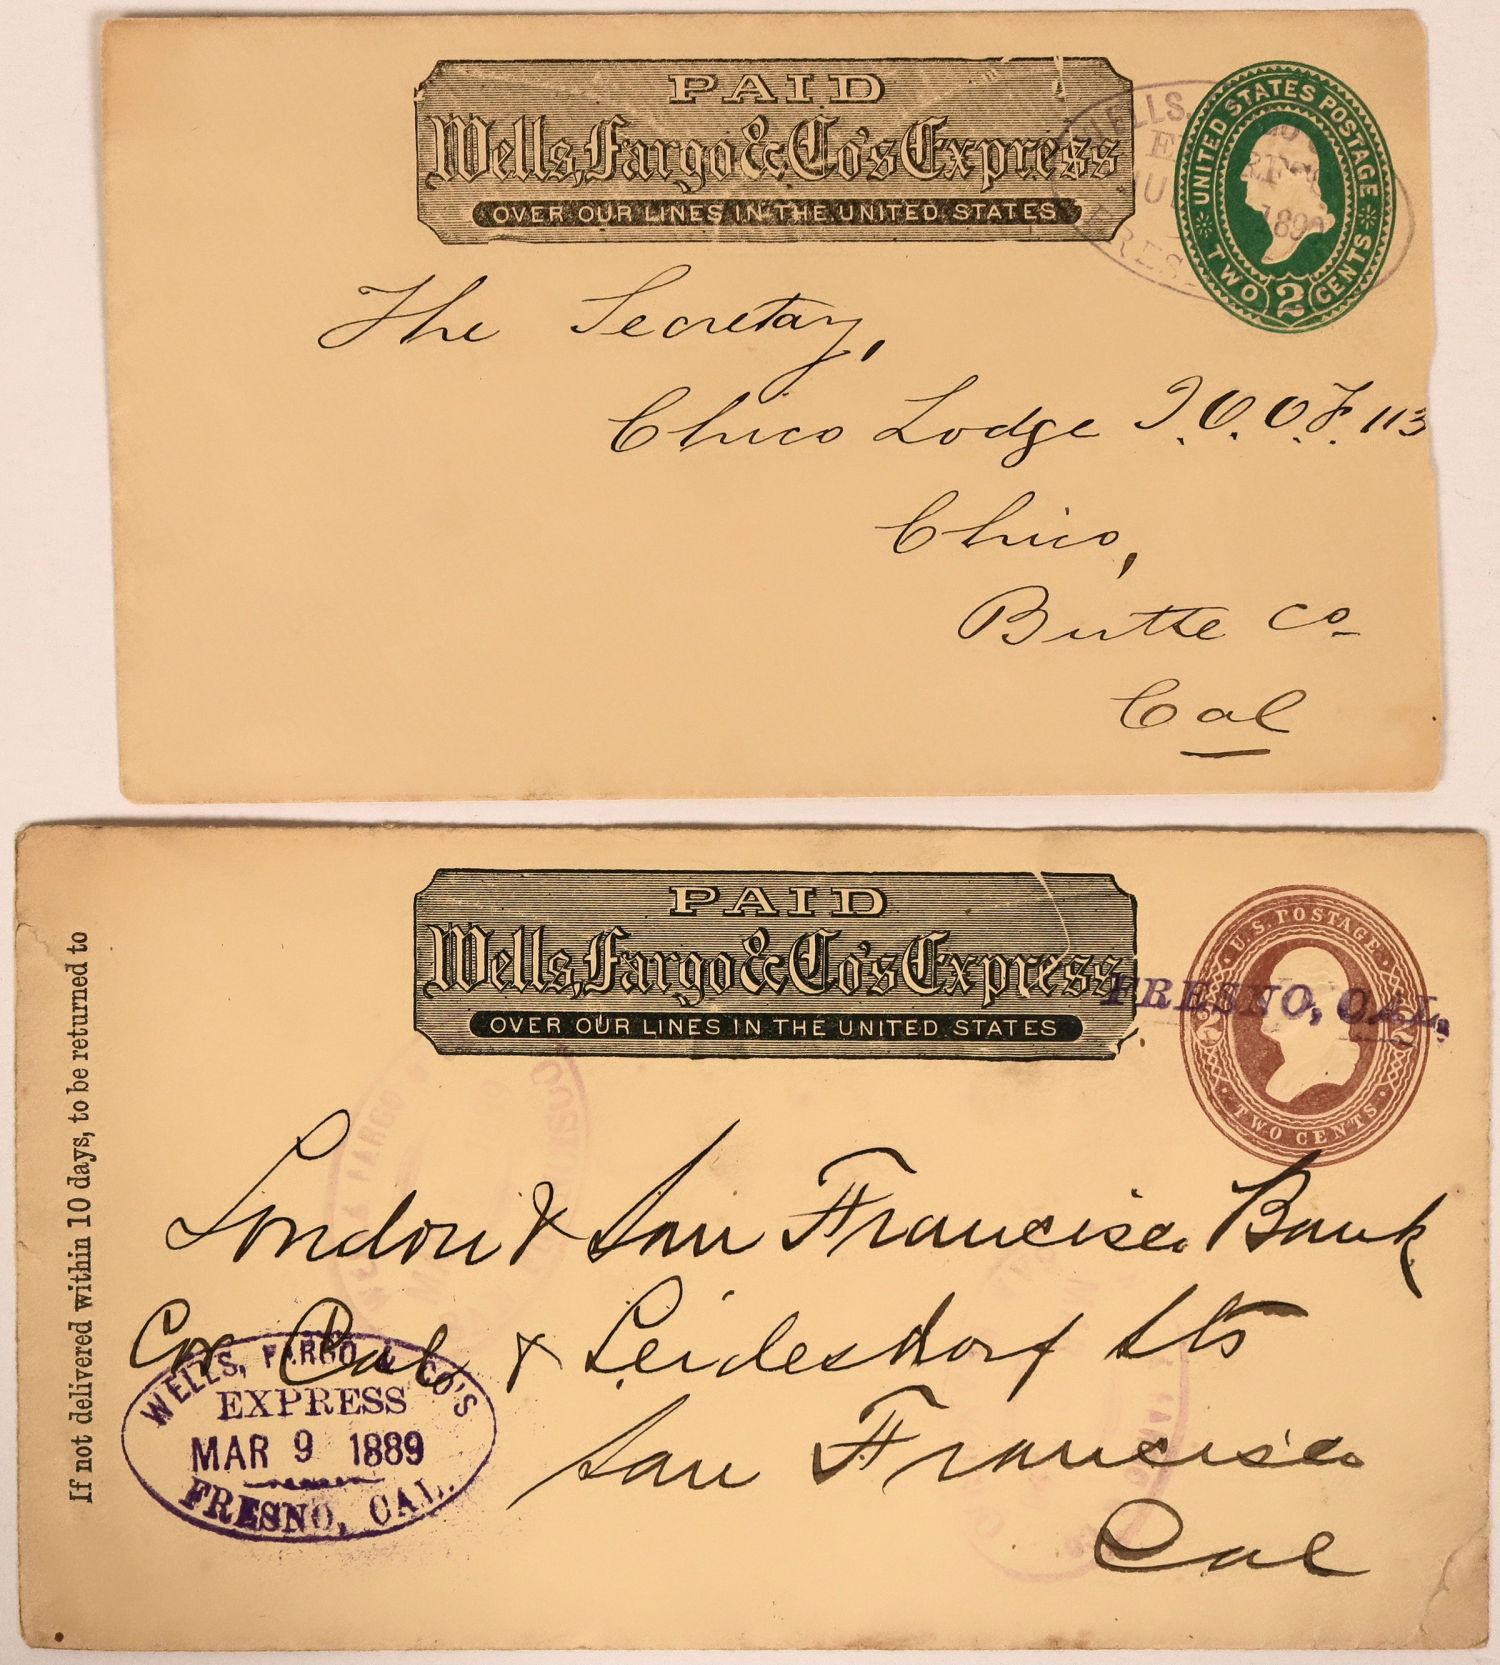 PAID
Wells, Fargo & Co's Express
OVER OUR LINES IN THE UNITED STATES
UNITED STATES POSTAGE
TWO 2 CENTS
WELLS.
1890
The Secretary,
Chico Lodge I.O.O.F. 113
Chico,
Butte Co
Cal
PAID
Wells, Fargo & Co's Express
OVER OUR LINES IN THE UNITED STATES
U.S. POSTAGE
2 2
TWO CENTS
FRESNO, CAL.
If not delivered within 10 days, to be returned to
London & San Francisco Bank
Cor Cal & Leidesdorf Sts
San Francisco
Cal
WELLS, FARGO & CO'S
EXPRESS
MAR 9 1889
FRESNO, CAL.
FARGO